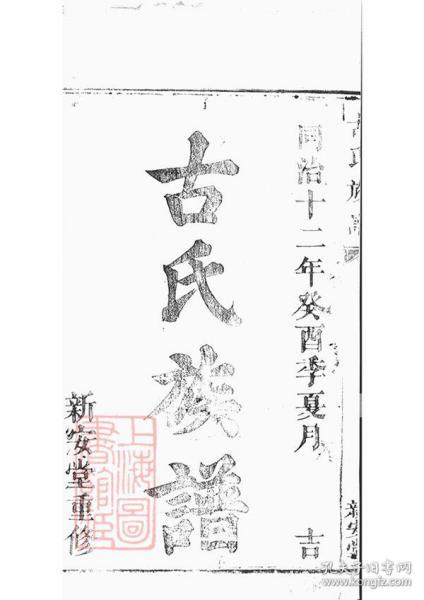 古氏族譜
新安堂
同治十二年癸酉季夏月 吉
古氏族譜
新安堂重修
上海圖書館藏
孔夫子旧书网
www.kongfz.com